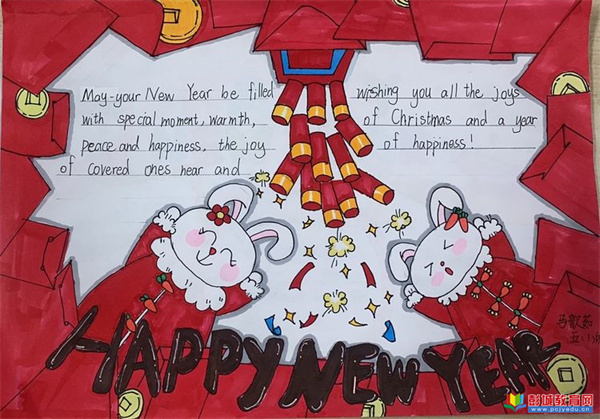 May-your New Year be filled
with special moment, warmth,
peace and happiness, the joy
of covered ones near and
wishing you all the joys
of Christmas and a year
of happiness!
HAPPY NEW YEAR
彭城教育网
www.pcjyedu.cn